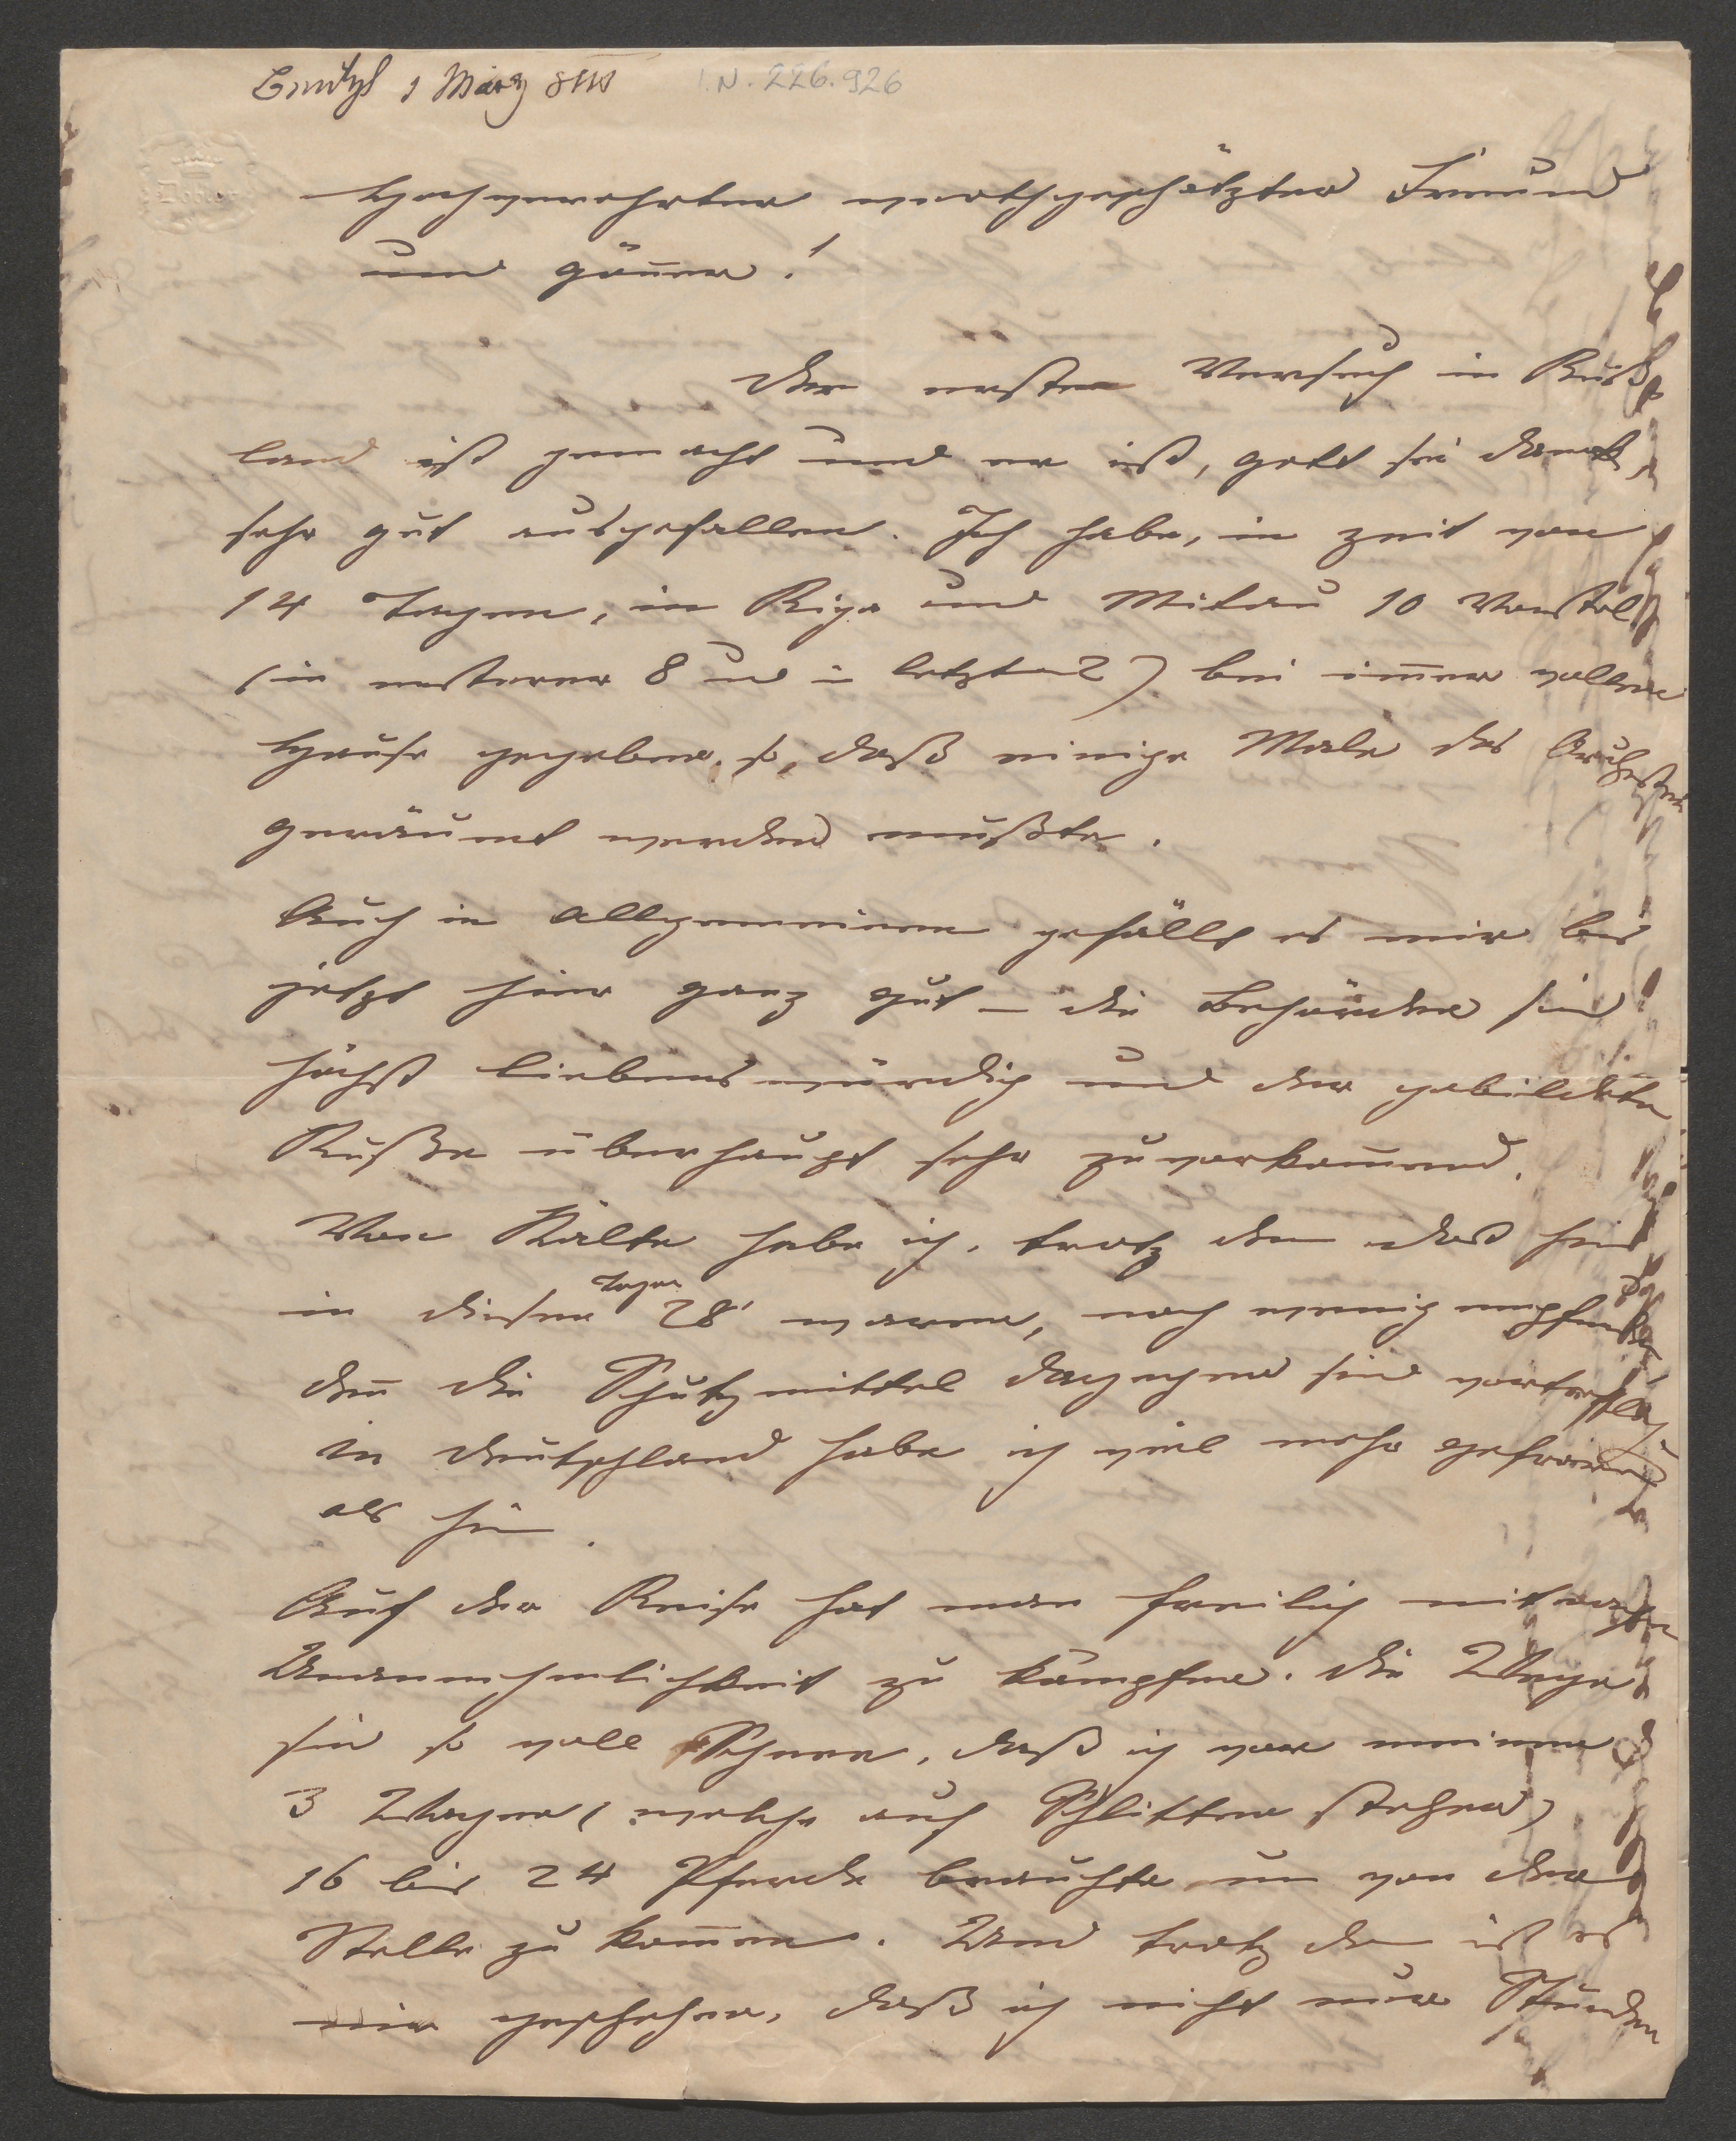 1 März
I.N. 226.926
Hochverehrter werthgeschätzter Freund
und Gönner!
Der erste Versuch in Ruß
land ist gemacht und er ist, Gott sei Dank,
sehr gut ausgefallen. Ich habe, in Zeit von
14 Tagen, in Riga und Mitau 10 Vorstel
(in ersterer 8 und in letzter 2) bei im̅er vollem
Hause gegeben, so, daß einige Male das Orchester
geräumt werden mußte.
Auch in Allgemeinen gefällt es mir bis
jetzt hier ganz gut – die Behörden sind
höchst liebenswürdig und der gebildete
Ruße überhaupt sehr zuvorkom̅end.
Von Kälte habe ich, trotz dem daß hier
in diesen Tagen 28° waren, noch wenig empfunden
den̅ die Schutzmittel dagegen sind vortrefflich
in Deutschland habe ich viel mehr gefroren
als hier.
Auf der Reise hat man freilich mit
Unannehmlichkeit zu kämpfen. Die Wege
sind so voll Schnee, daß ich vor meinen
3 Wagen (welche auf Schlitten stehen)
16 bis 24 Pferde brauchte um von der
Stelle zu kom̅en. Und trotz dem ist es
mir geschehen, daß ich nicht nur Stunden